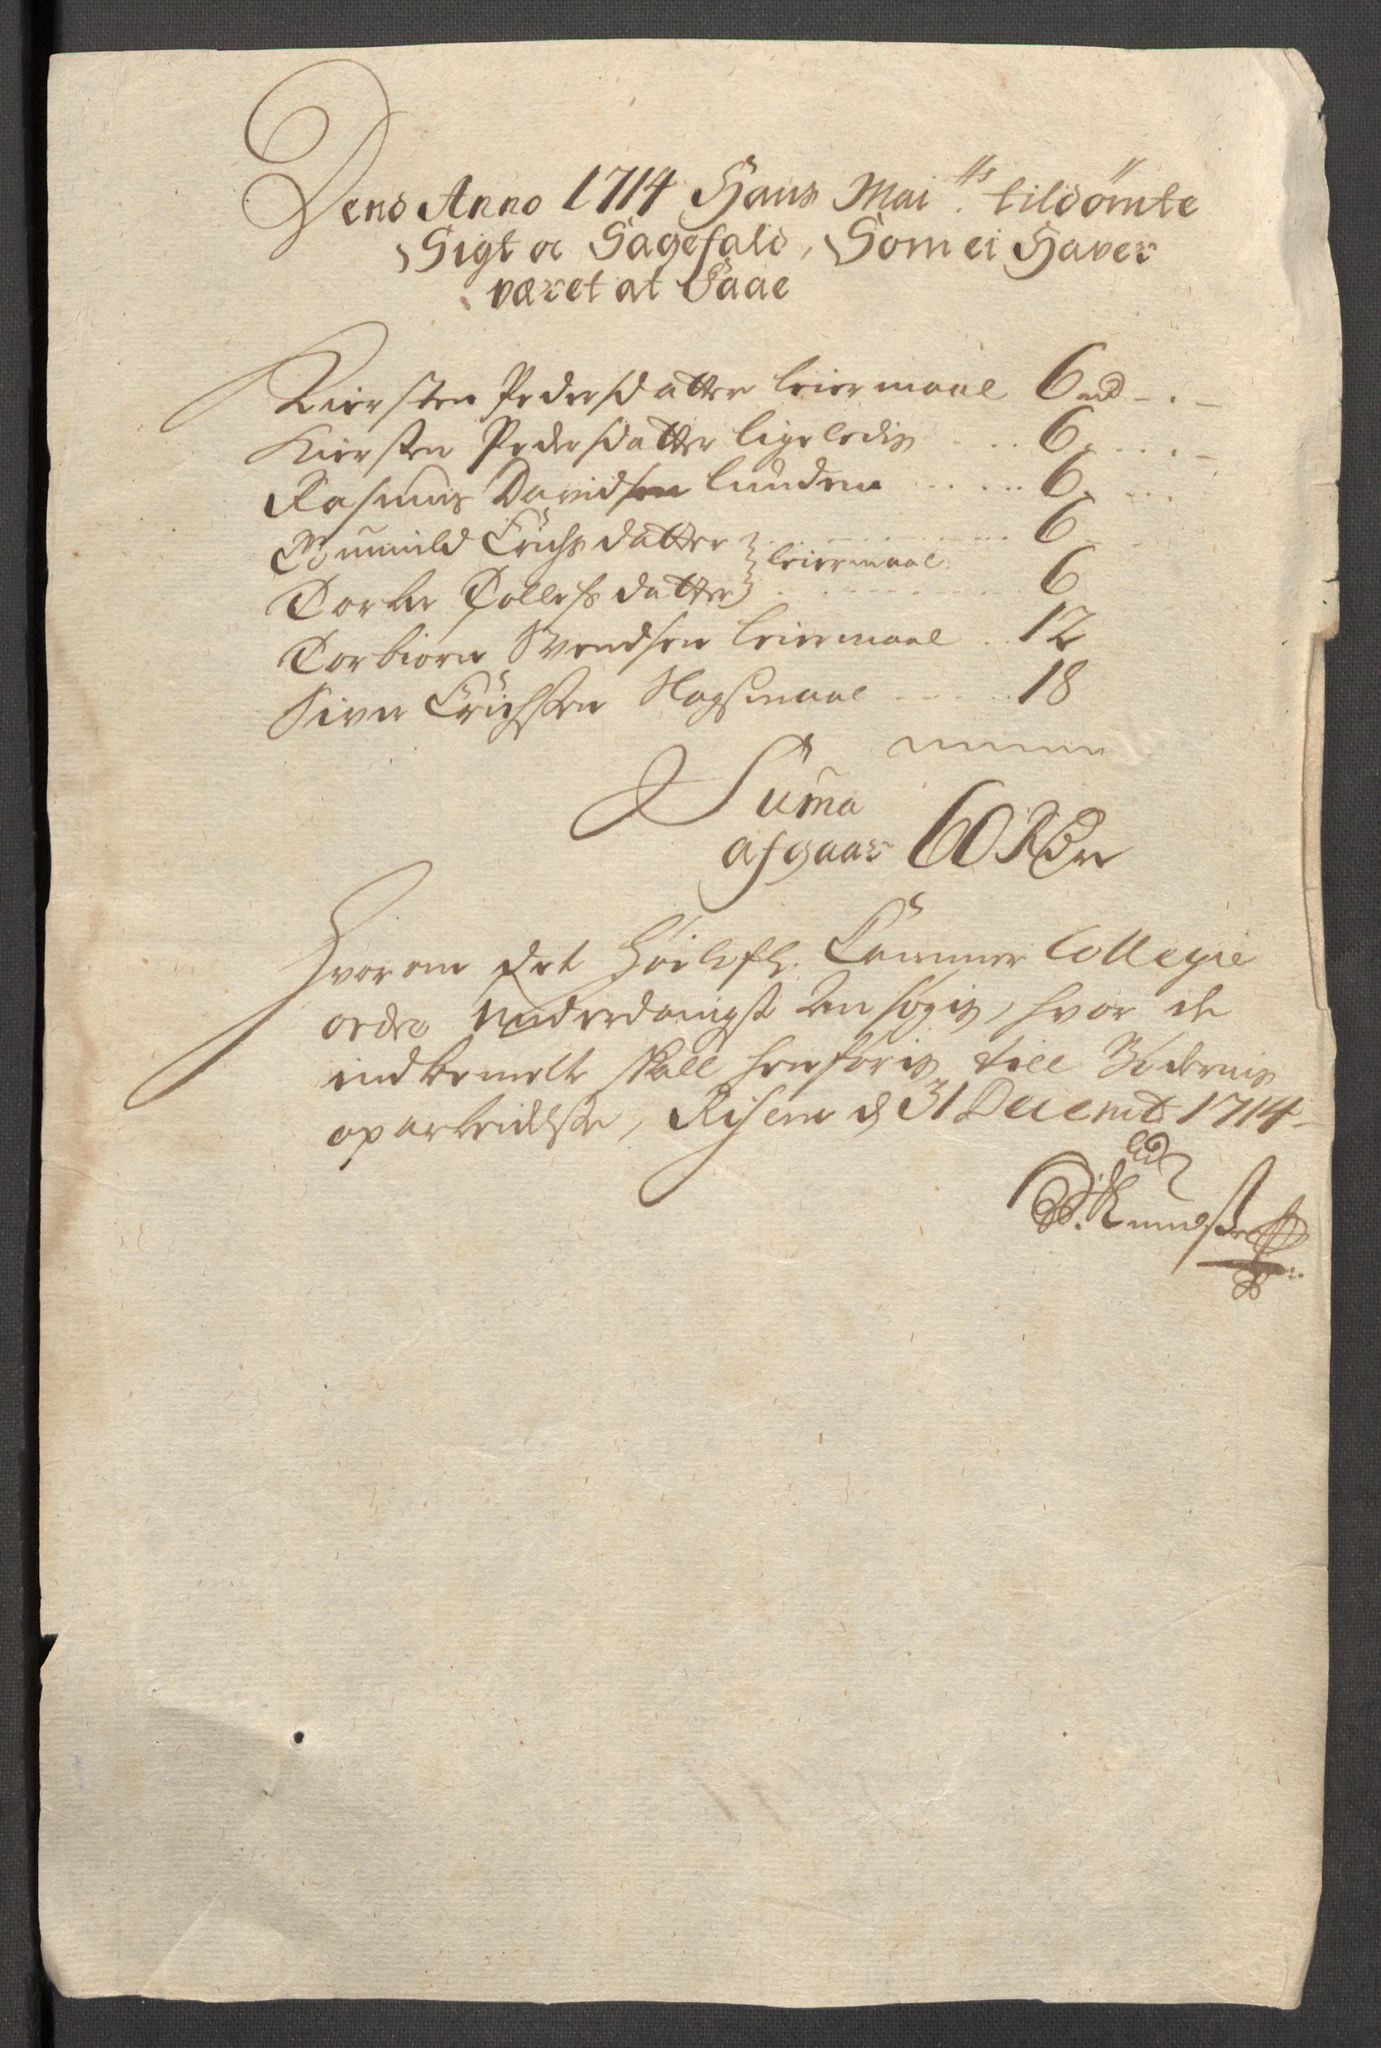 Dend Anno 1714 Hans Mai.ts tildømte
Sigt oc Sagefald, Som ei Haver
været at Faae
Kiersten Pedersdatter leiermaal 6 rd - . -
Kiersten Pedersdatter ligeledis .... 6. . . . -
Rasmus Davidsen lunden ..... 6. ...
Gunnild Erichsdatter ..... 6 - -
leiermaal
Dorte Tollefsdatter ..... 6
Torbiørn Svendsen leiermaal .. 12
Siver Erichsen Slagsmaal ..... 18
Suma
afgaar 60 Rdr
Hvorom det Høilofl. Cammer Collegie
ordre underdanigst ansøgis, hvor de
indbemelte skall henføris till
oparbeidelse, Risøer d 31 Decemb 1714
Knudsen